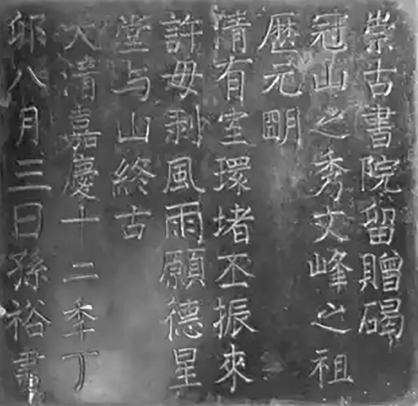 崇古書院留贈碣
冠山之秀文峰之祖
歴元眀
清有室環堵丕振來
許毋剥風雨願德星
堂与山終古
大清嘉慶十二秊丁
卯八月三日孫裕書